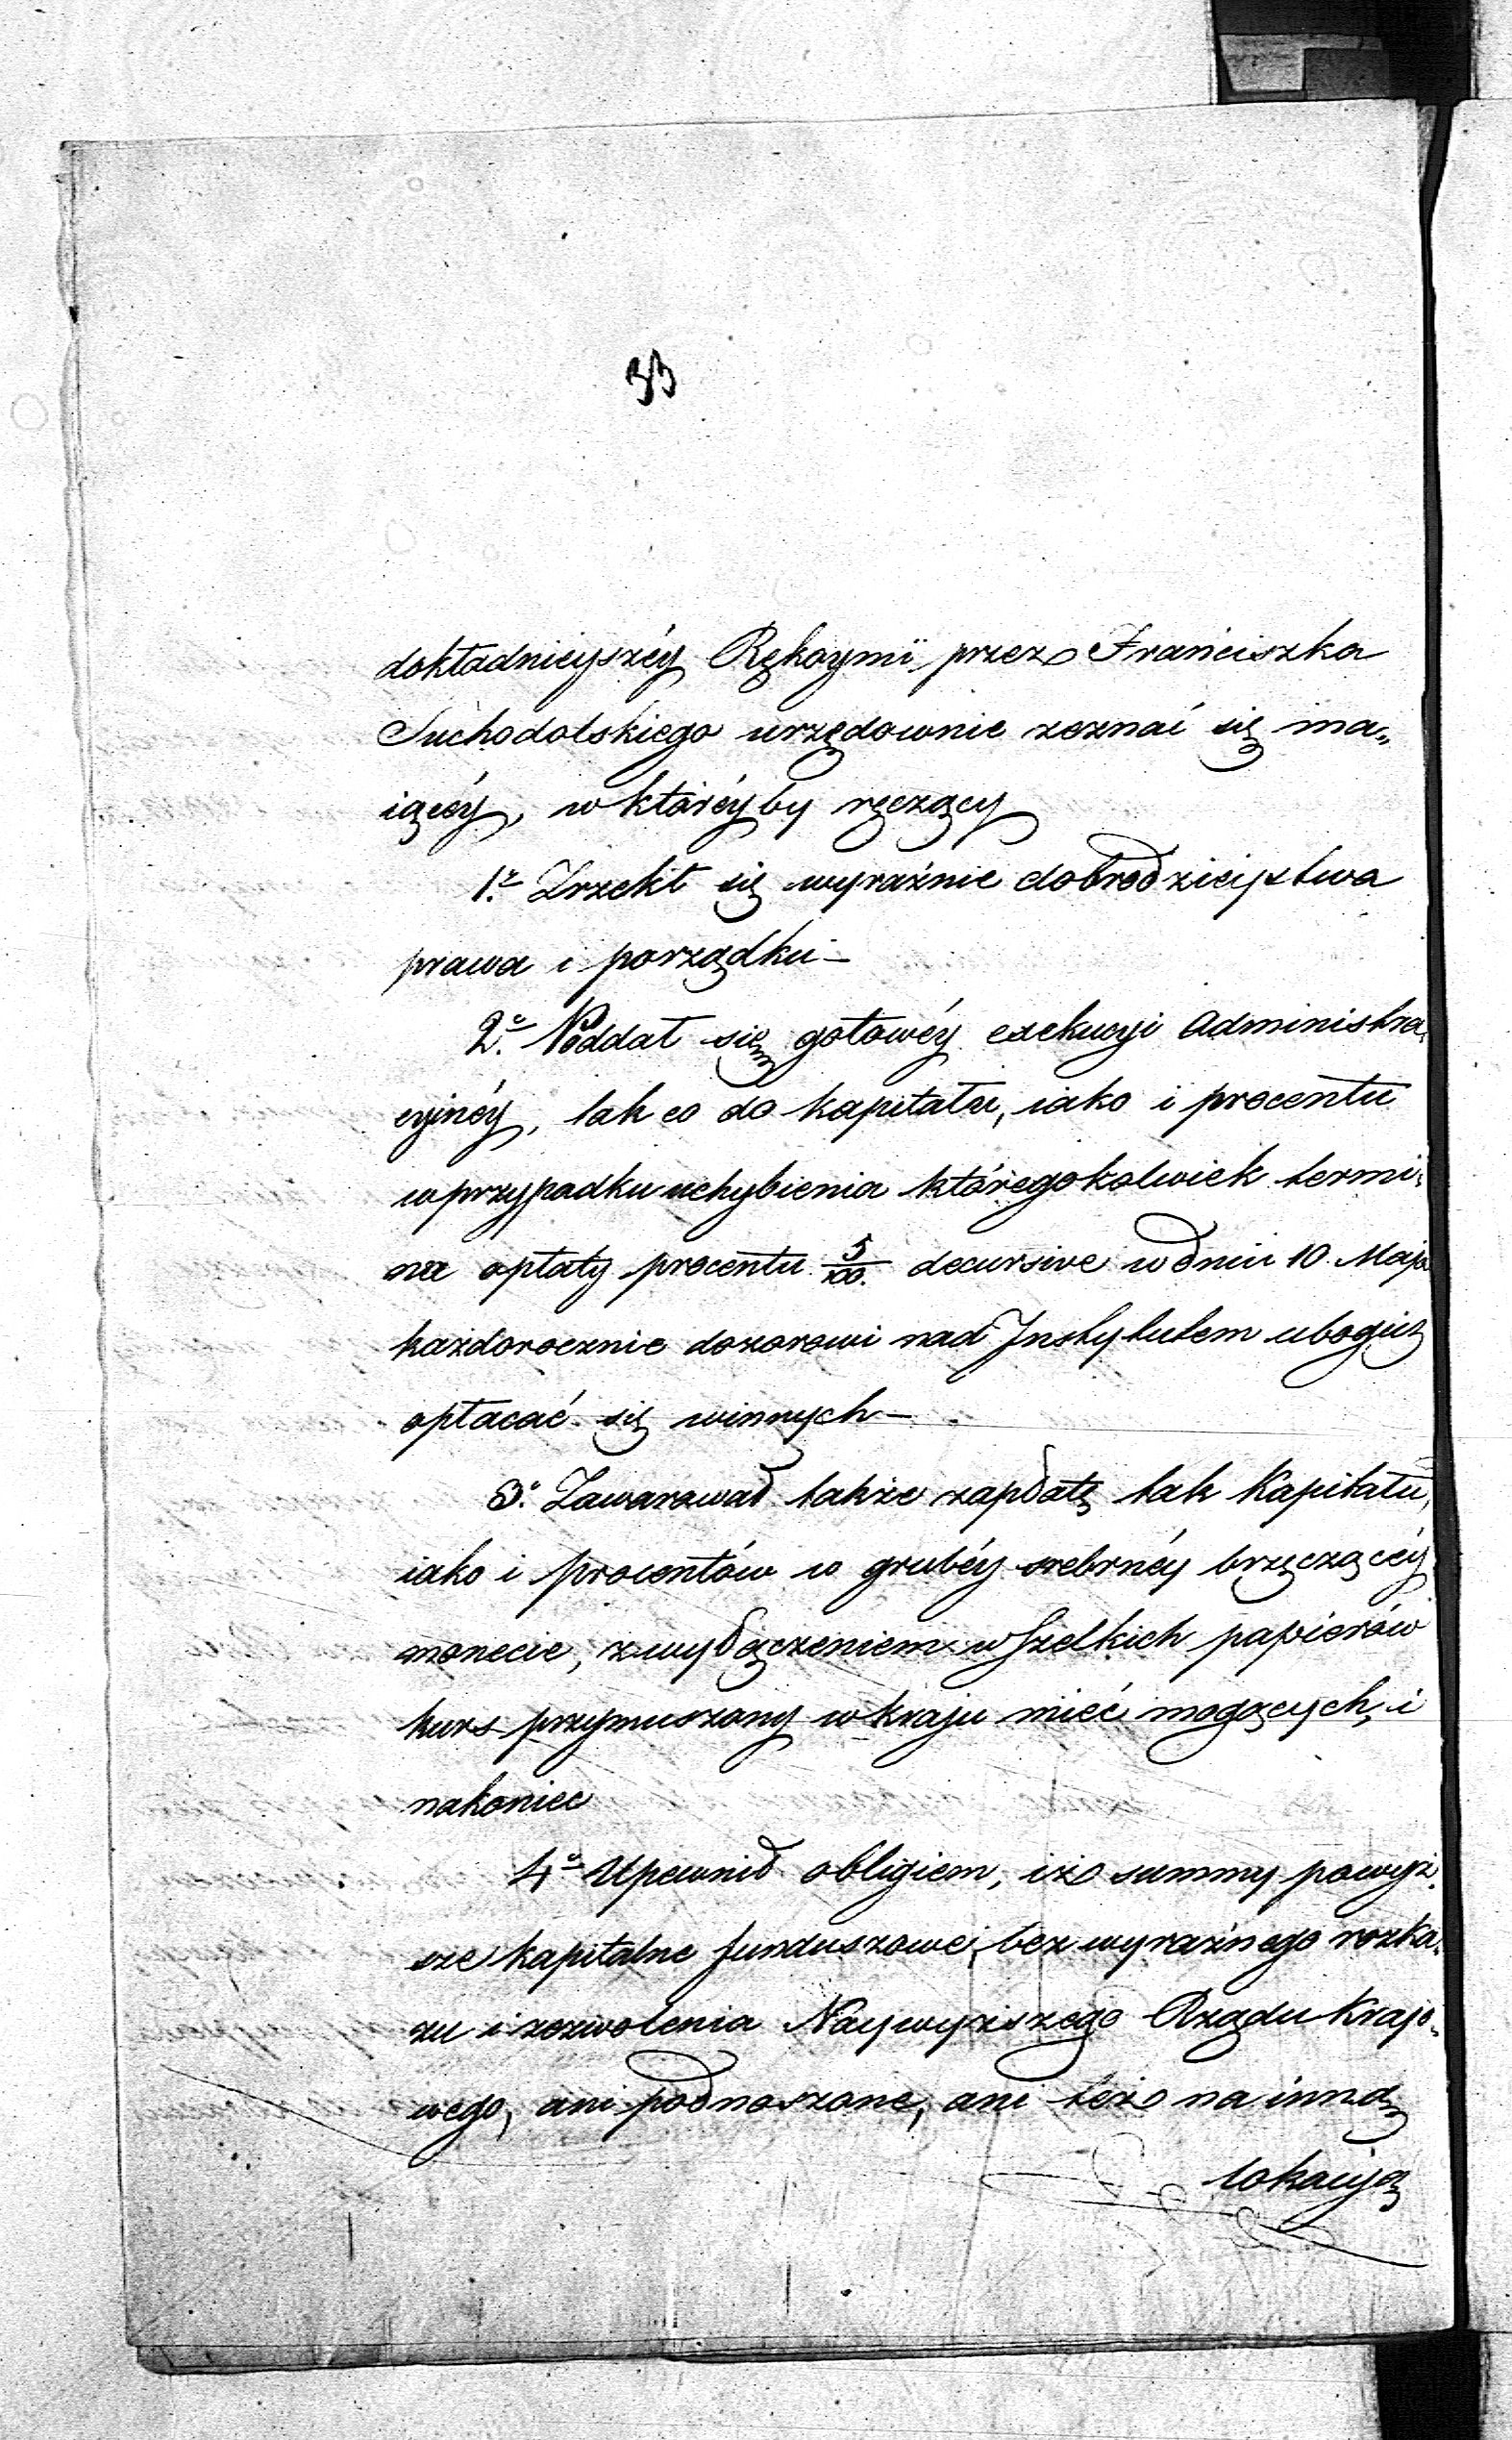 33
dokładnieyszéy Rękoymi przez Franciszka
Suchodolskiego urzędownie zeznać się ma„
iącéy, w któréyby ręczący
1º Zrzekł się wyraźnie dobrodzieystwa
prawa i porządku –
2º Poddał się gotowéy exekucyi administra„
cyinéy, tak co do kapitału, iako i procentu
w przypadku uchybienia któregokolwiek termi„
nu opłaty procentu 5/100. decursive w dniu 10 Maja
każdorocznie dozorowi nad Instytutem ubogich
opłacać się winnych –
3º Zawarował także zapłatę tak Kapitału,
iako i procentów w grubéy srebrnéy brzęczącéy
monecie, z wyłączeniem wszelkich papierów
kurs przymuszony w kraju mieć mogących, i
nakoniec
4º Upewnił obligiem, iż summy powyż„
sze kapitalne funduszowe, bez wyraźnego rozka„
zu i zezwolenia Naywyższego Rządu Krajo„
wego, ani podnoszone, ani też na inną
lokacyą